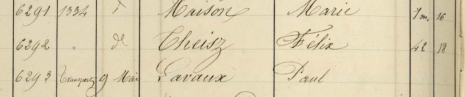 6291 1334 d Maison Marie 7 m. 16
6292 " de Theisz Félix 42 18
6293 9 Mai Lavaux Paul